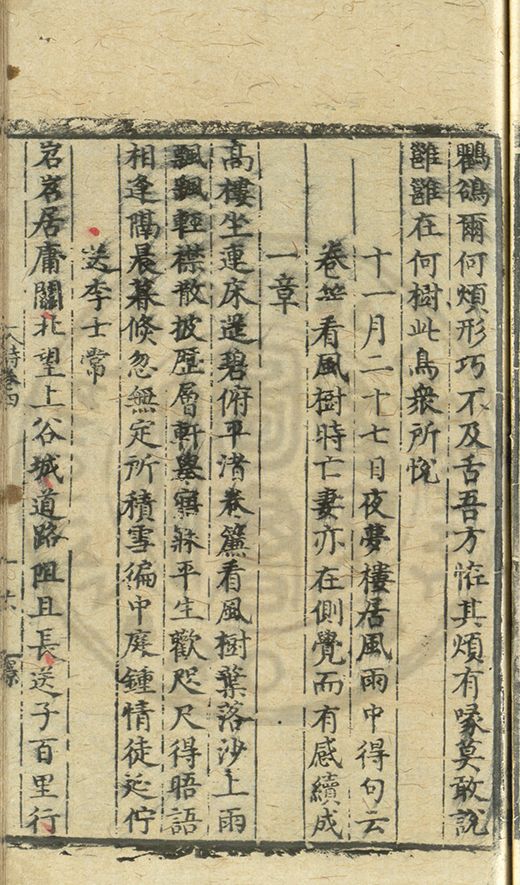 鸜鵒爾何煩形巧不及舌吾方恠其煩有喙莫敢說
雝雝在何樹此鳥衆所悅
十一月二十七日夜夢樓居風雨中得句云
卷看風樹時亡妻亦在側覺而有感續成
一章
高樓坐連床遥碧俯平渚卷簾看風樹葉落沙上雨
飄飄輕襟散披歷層軒舉寤寐平生歡咫尺得晤語
相逢隔晨暮倐忽無定所積雪編中庭鍾情徒延佇
送李士常
岧岧居庸關北望上谷城道路阻且長送子百里行
人詩卷四